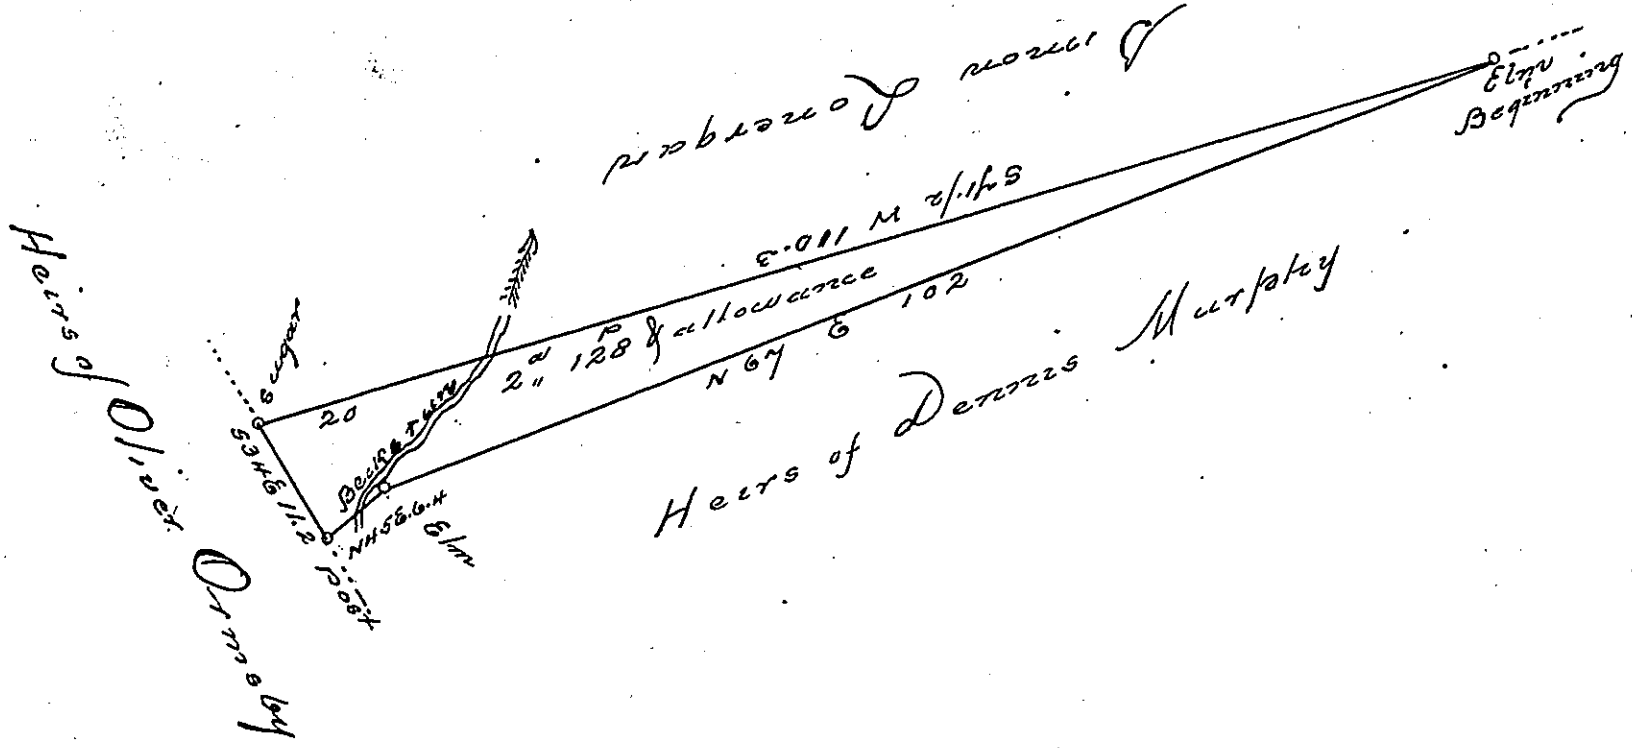 Simon Lonergan
Elm
Beginning
S 71 1/2 W 110.3
2 a 128 p & allowance
N 67 E 102
Heirs of Dennis Murphy
Sugar
20
S 34 E 11.2
Post
N 45 E 6.4
Elm
Heirs of Oliver Ormsby